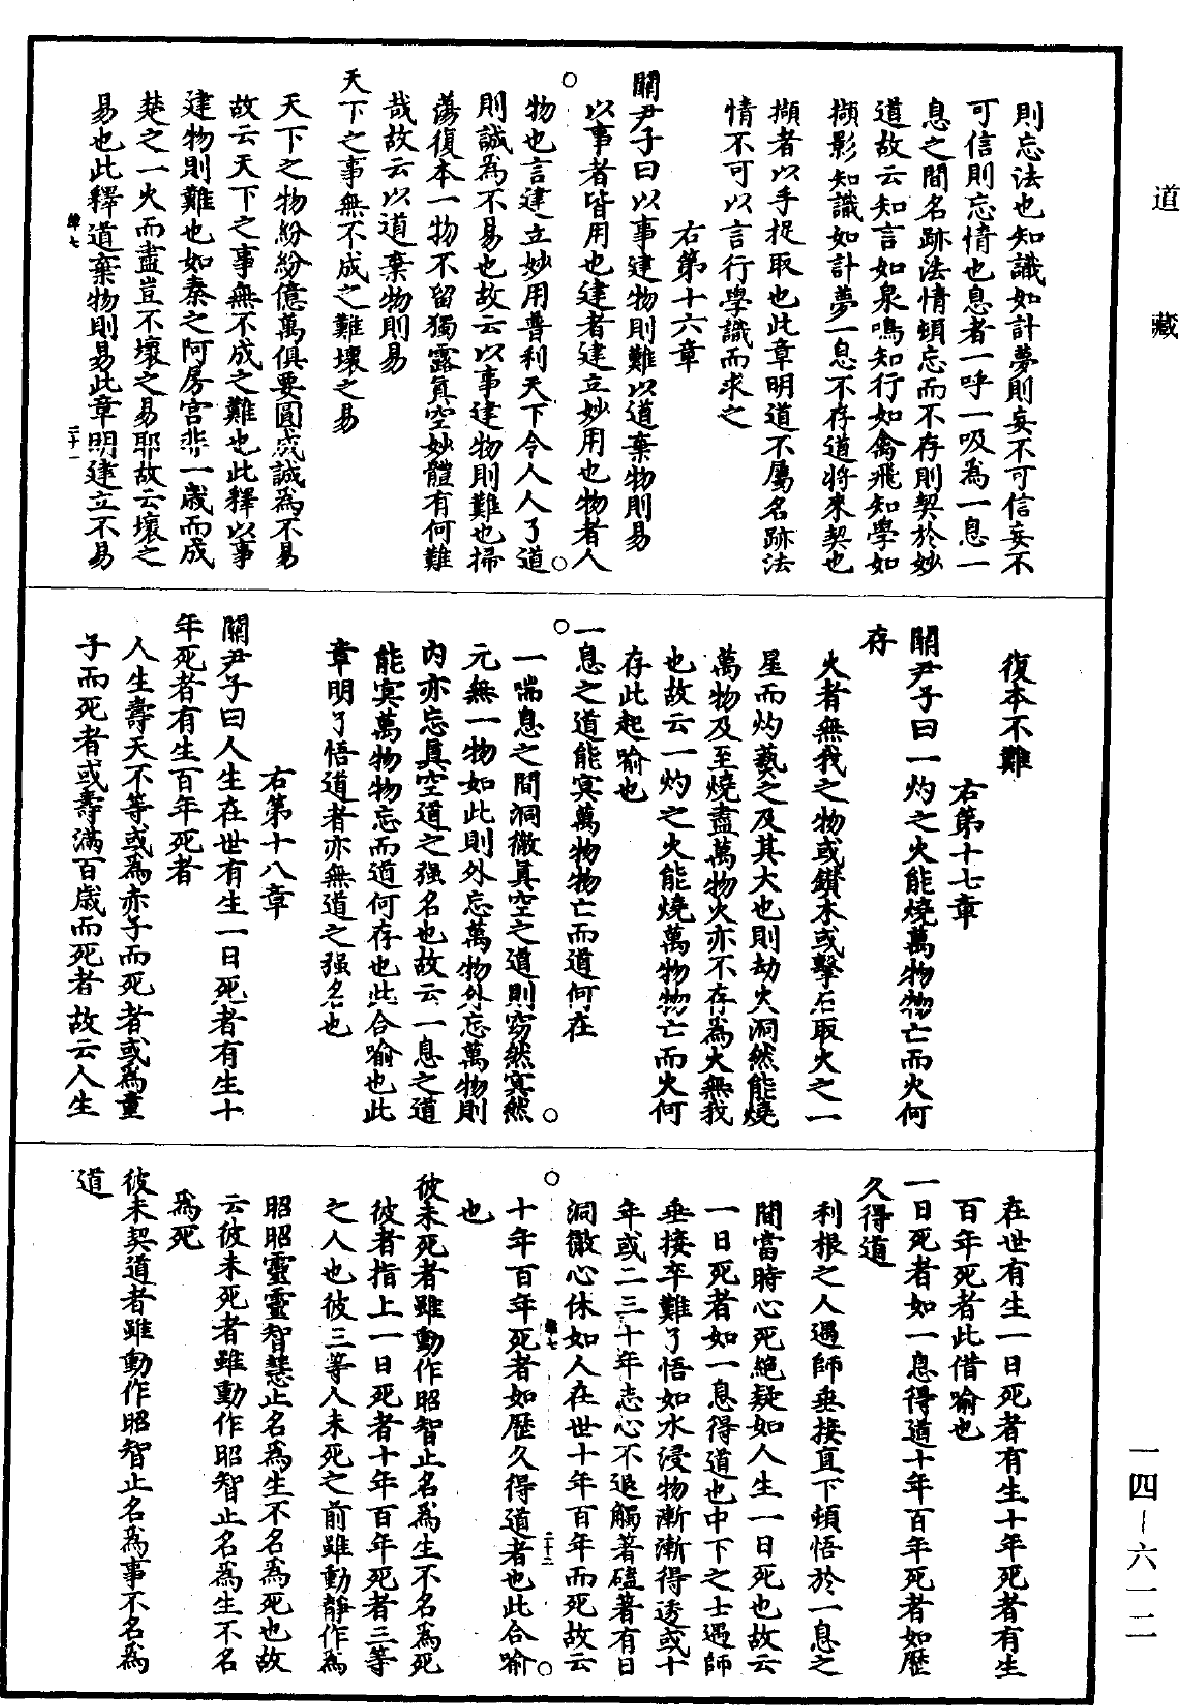 道藏
則忘法也知識如計夢則妄不可信妄不
可信則忘情也息者一呼一吸為一息一
息之間名跡法情頓忘而不存則契於妙
道故云知言如泉鳴知行如禽飛知學如
擷影知識如計夢一息不存道將來契也
擷者以手捉取也此章明道不屬名跡法
情不可以言行學識而求之
右第十六章
關尹子曰以事建物則難以道棄物則易
以事者皆用也建者建立妙用也物者人
物也言建立妙用普利天下令人人了道
則誠為不易也故云以事建物則難也掃
蕩復本一物不留獨露真空妙體有何難
哉故云以道棄物則易
天下之事無不成之難壞之易
天下之物紛紛億萬俱要圓成誠為不易
故云天下之事無不成之難也此釋以事
建物則難也如秦之阿房宮非一歲而成
楚之一火而盡豈不壞之易耶故云壞之
易也此釋道棄物則易此章明建立不易
二十一
復本不難
右第十七章
關尹子曰一灼之火能燒萬物物亡而火何
存
火者無我之物或鑽木或擊石取火之一
星而灼爇之及其大也則劫火洞然能燒
萬物及至燒盡萬物火亦不存為火無我
也故云一灼之火能燒萬物物亡而火何
存此起喻也
一息之道能冥萬物物亡而道何在
一喘息之間洞徹真空之道則窈然冥然
元無一物如此則外忘萬物外忘萬物則
內亦忘真空道之强名也故云一息之道
能冥萬物物忘而道何存也此合喻也此
章明了悟道者亦無道之强名也
右第十八章
關尹子曰人生在世有生一日死者有生十
年死者有生百年死者
人生壽夭不等或為赤子而死者或為童
子而死者或壽滿百歲而死者故云人生
在世有生一日死者有生十年死者有生
百年死者此借喻也
一日死者如一息得道十年百年死者如歷
久得道
利根之人遇師垂接直下頓悟於一息之
間當時心死絕疑如人生一日死也故云
一日死者如一息得道也中下之士遇師
垂接卒難了悟如水浸物漸漸得透或十
年或二三十年志心不退觸著磕著有日
洞徹心休如人在世十年百年而死故云
二十二
十年百年死者如歷久得道者也此合喻
也
彼未死者雖動作昭智止名為生不名為死
彼者指上一日死者十年百年死者三等
之人也彼三等人未死之前雖動靜作為
昭昭靈靈智慧止名為生不名為死也故
云彼未死者雖動作昭智止名為生不名
為死
彼未契道者雖動作昭智止名為事不名為
道
一四—六一二